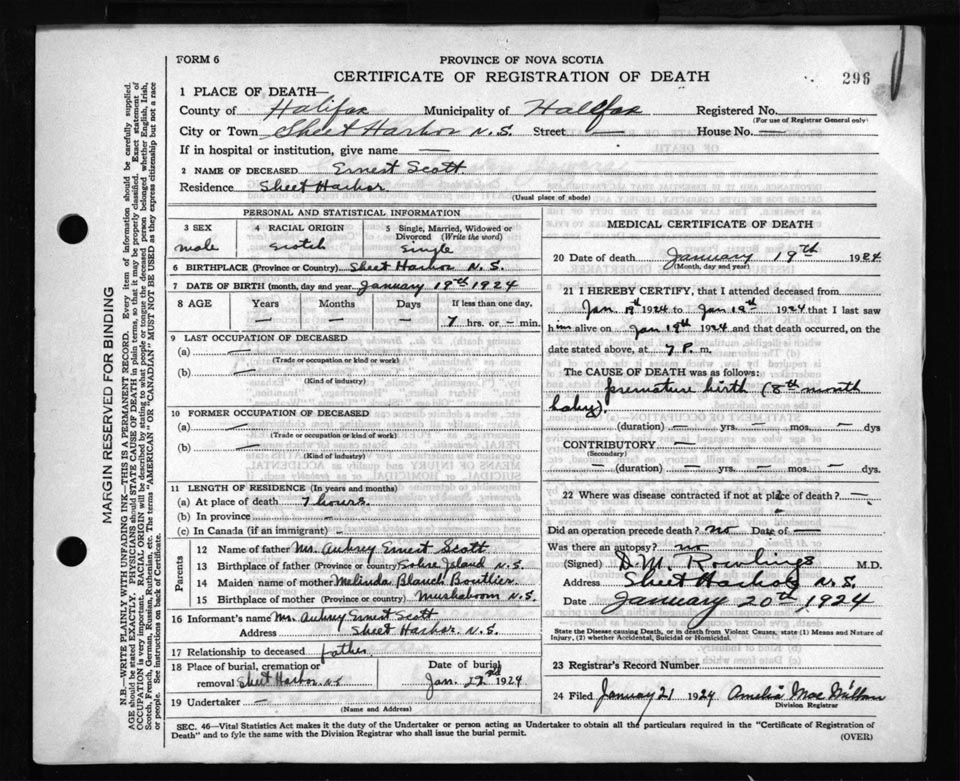 FORM 6
PROVINCE OF NOVA SCOTIA
CERTIFICATE OF REGISTRATION OF DEATH
296
1 PLACE OF DEATH—
County of Halifax Municipality of Halifax Registered No.
(For use of Registrar General only)
City or Town Sheet Harbor N.S. Street — House No. —
If in hospital or institution, give name —
2 NAME OF DECEASED Ernest Scott
Residence Sheet Harbor.
(Usual place of abode)
PERSONAL AND STATISTICAL INFORMATION
3 SEX 4 RACIAL ORIGIN 5 Single, Married, Widowed or Divorced (Write the word)
male Scotch Single
6 BIRTHPLACE (Province or Country) Sheet Harbor N.S.
7 DATE OF BIRTH (month, day and year January 19th 1924
8 AGE Years Months Days If less than one day,
— — — 7 hrs. or – min.
9 LAST OCCUPATION OF DECEASED
(a) —
(Trade or occupation or kind or work)
(b) —
(Kind of industry)
10 FORMER OCCUPATION OF DECEASED
(a) —
(Trade or occupation or kind of work)
(b) —
(Kind of industry)
11 LENGTH OF RESIDENCE (In years and months)
(a) At place of death 7 hours.
(b) In province –
(c) In Canada (if an immigrant) –
Parents
12 Name of father Mr. Aubrey Ernest Scott
13 Birthplace of father (Province or country) Sobre Island N.S.
14 Maiden name of mother Melinda Blanch Boutlier.
15 Birthplace of mother (Province or country) Mushaboom N.S.
16 Informant's name Mr. Aubrey Ernest Scott
Address Sheet Harbor N.S.
17 Relationship to deceased father.
18 Place of burial, cremation or removal Sheet Harbor NS
Date of burial
Jan. 22nd 1924
19 Undertaker —
(Name and Address)
MEDICAL CERTIFICATE OF DEATH
20 Date of death January 19th 1924
(Month, day and year)
21 I HEREBY CERTIFY, that I attended deceased from
Jan 19th 1924 to Jan 19th 1924 that I last saw
him alive on Jan 19th 1924 and that death occurred, on the
date stated above, at 7 P. m.
The CAUSE OF DEATH was as follows:
premature birth (8th month
baby).
— (duration) — yrs. — mos. — dys
CONTRIBUTORY —
(Secondary)
— (duration) — yrs. — mos. — dys.
22 Where was disease contracted if not at place of death? —
Did an operation precede death? no Date of —
Was there an autopsy? no
(Signed) D.M. Rowlings M.D.
Address Sheet Harbor N.S.
Date January 20th 1924
State the Disease causing Death, or in death from Violent Causes, state (1) Means and Nature of
Injury, (2) whether Accidental, Suicidal or Homicidal.
23 Registrar's Record Number
24 Filed January 21 1924 Amelia
Division Registrar
SEC. 46—Vital Statistics Act makes it the duty of the Undertaker or person acting as Undertaker to obtain all the particulars required in the "Certificate of Registration of
Death" and to fyle the same with the Division Registrar who shall issue the burial permit.
(OVER)
MARGIN RESERVED FOR BINDING
N.B.—WRITE PLAINLY WITH UNFADING INK—THIS IS A PERMANENT RECORD. Every item of information should be carefully supplied.
AGE should be stated EXACTLY. PHYSICIANS should STATE CAUSE OF DEATH in plain terms, so that it may be properly classified. Exact statement of
OCCUPATION is very important. RACIAL ORIGIN will be described by stating to what people or tongue the deceased person belonged whether English, Irish,
Scotch, French, German, Russian, Ruthenian, etc. The terms "AMERICAN" OR "CANADIAN" MUST NOT BE USED as they express citizenship but not a race
or people. See instructions on back of Certificate.